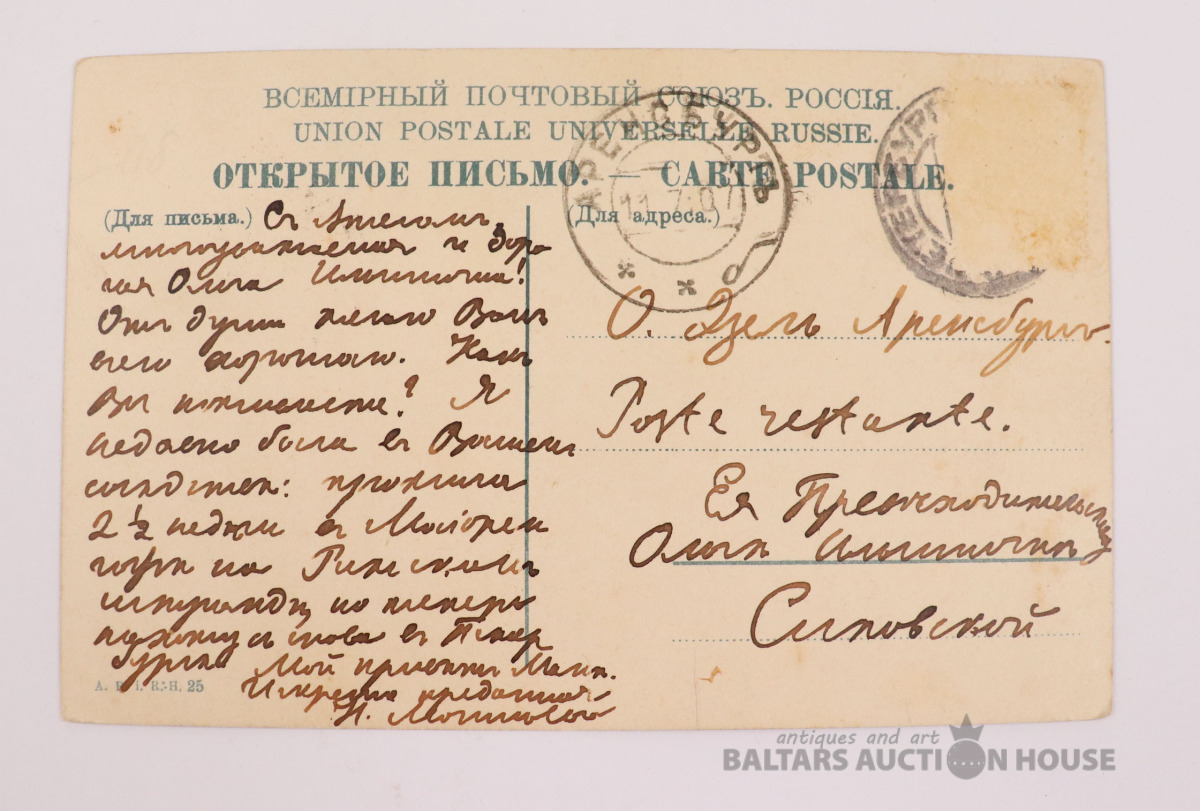 ВСЕМІРНЫЙ ПОЧТОВЫЙ СОЮЗЪ. РОССІЯ.
UNION POSTALE UNIVERSELLE RUSSIE.
ОТКРЫТОЕ ПИСЬМО. — CARTE POSTALE.
(Для письма.)
Съ Ангеломъ,
многоуважаемая и доро
гая Ольга Ильинична!
Отъ души желаю Вамъ
всего хорошаго. Какъ
Вы поживаете? Я
недавно была въ Вашемъ
соседстве: прожила
2 ½ недели въ Маіорен
гофе на Рижскомъ
штранде, но теперь
нахожусь снова въ Петер
бурге. Мой приветъ
Искренно преданная
Н.
A. 25
АРЕНСБУРГЪ
11.7.07
(Для адреса.)
ПЕТЕРБУРГ
О. Эзель Аренсбургъ.
Poste restante.
Ея Превосходительству
Ольге Ильиничне
Сиповской
antiques and art
BALTARS AUCTION HOUSE